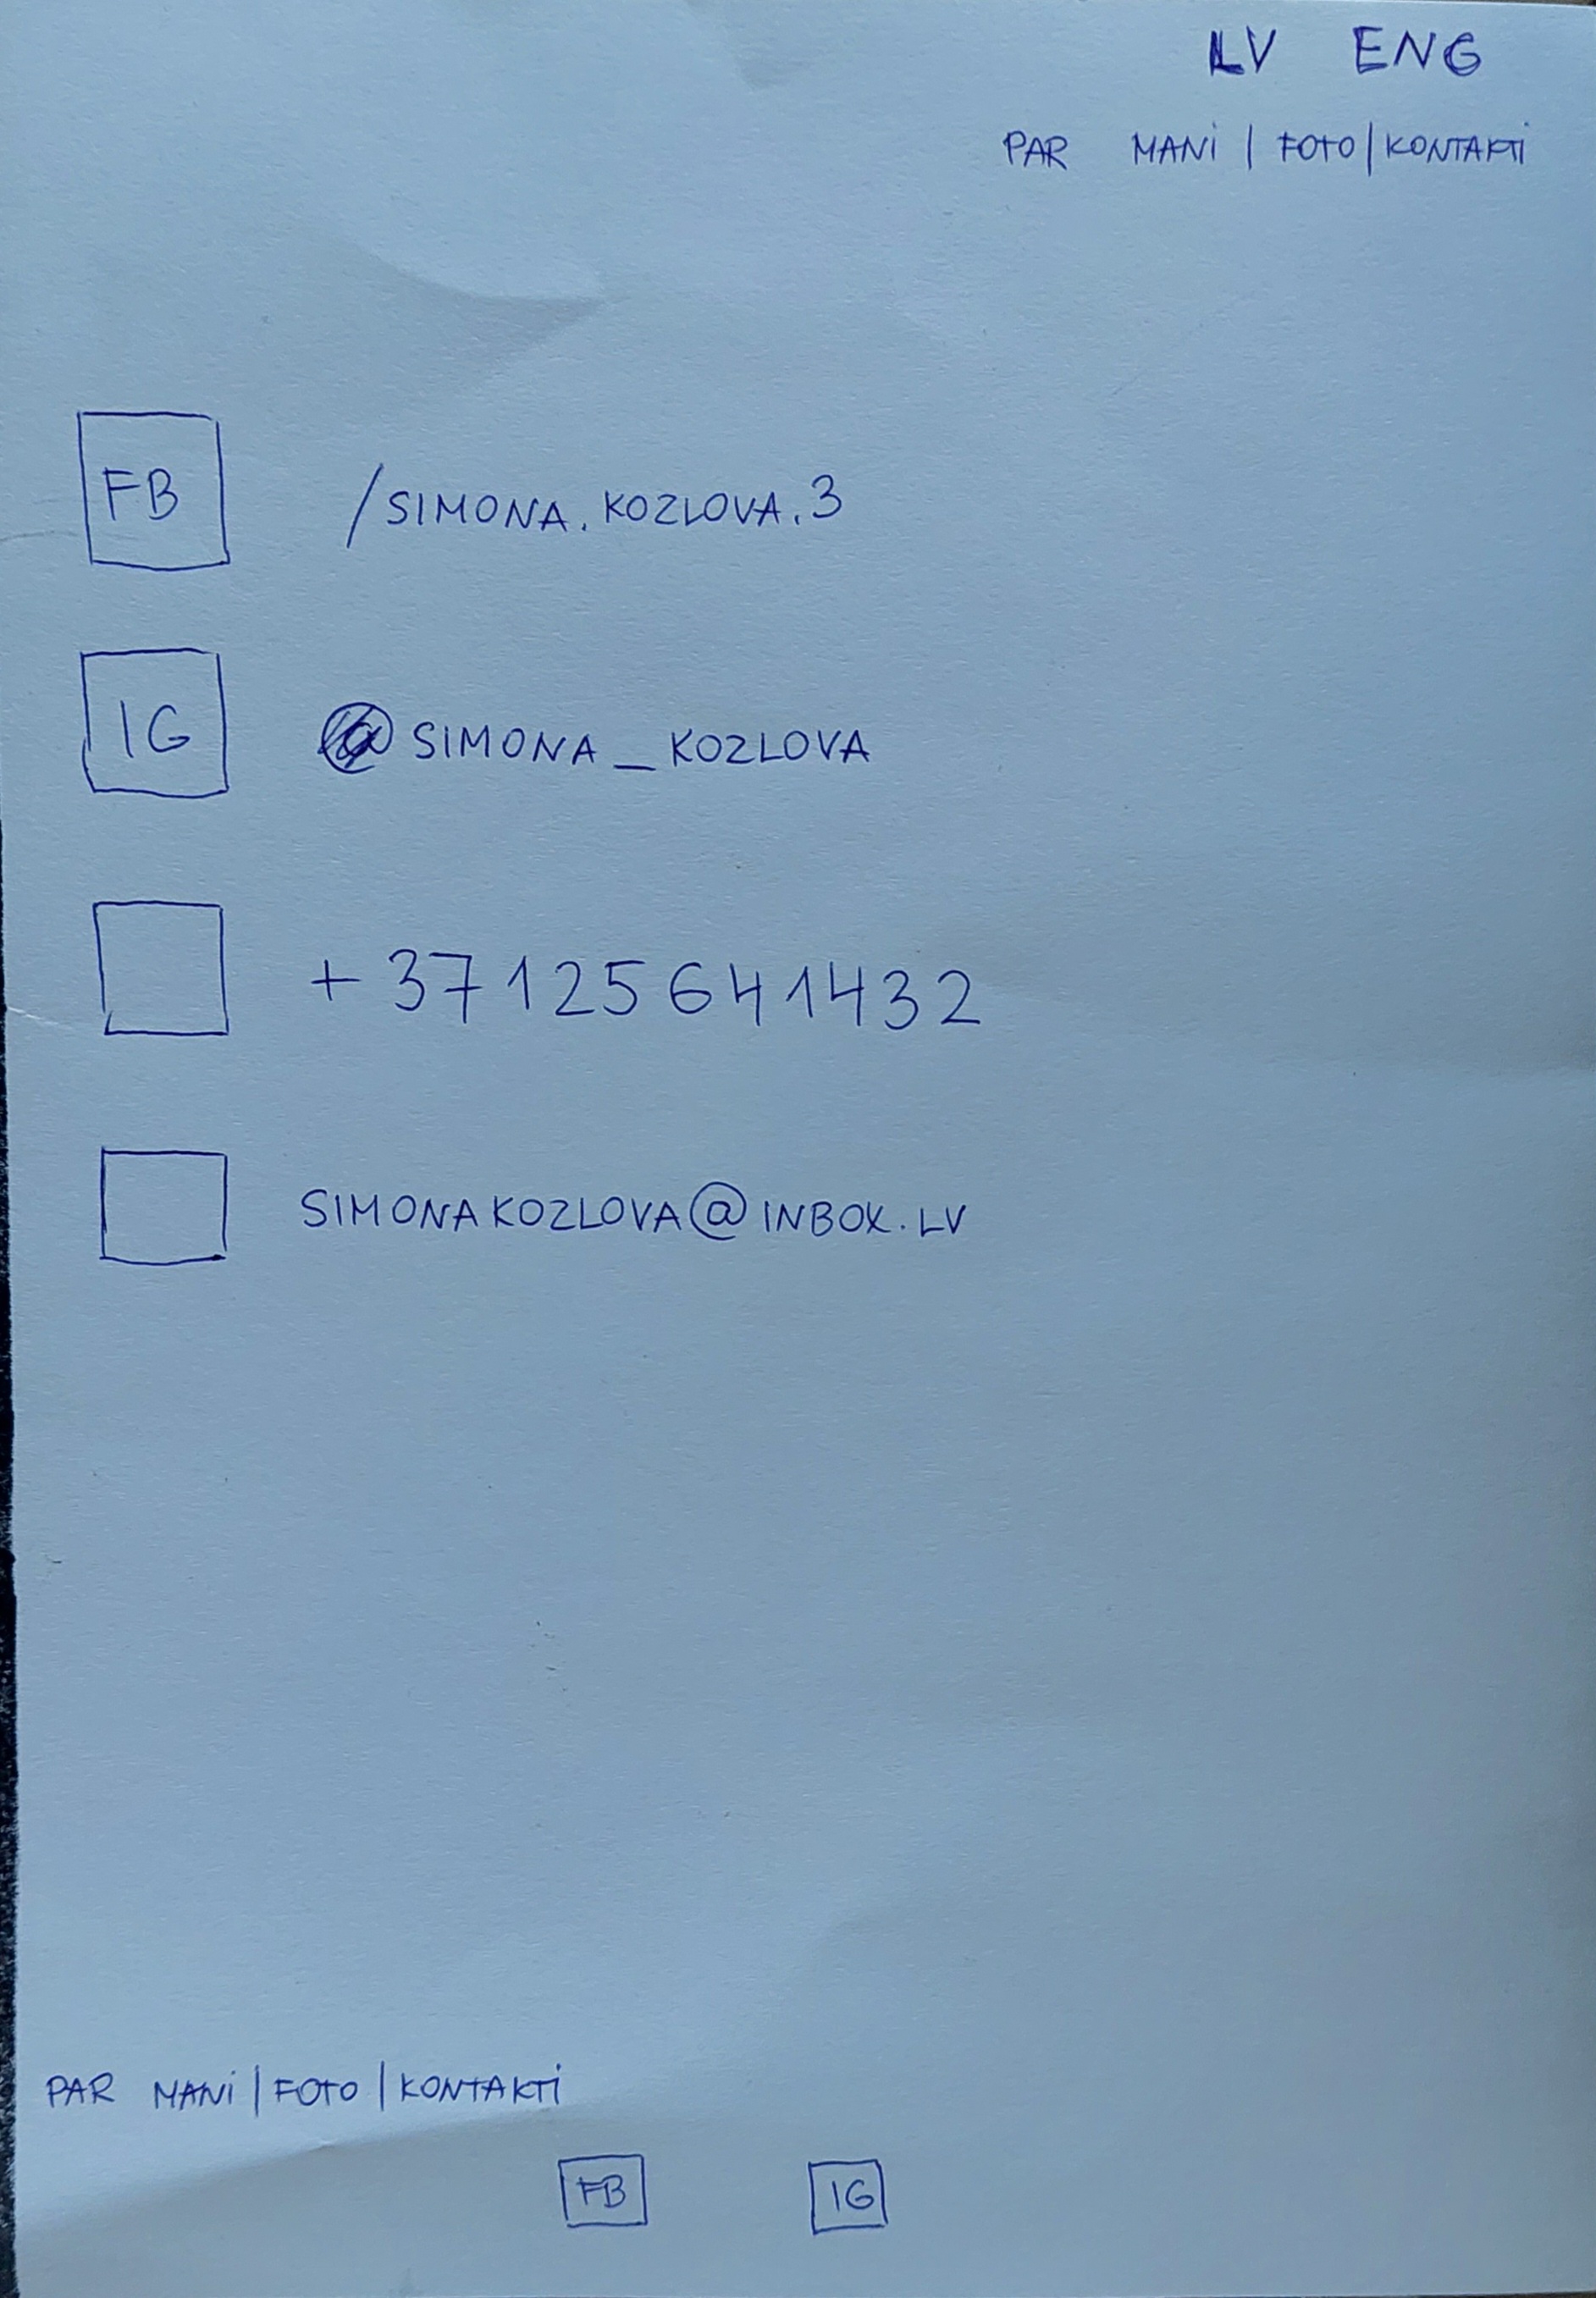 LV ENG
PAR MANI | FOTO | KONTAKTI
FB /SIMONA.KOZLOVA.3
IG @SIMONA_KOZLOVA
+37125641432
SIMONAKOZLOVA@INBOX.LV
PAR MANI | FOTO | KONTAKTI
FB IG